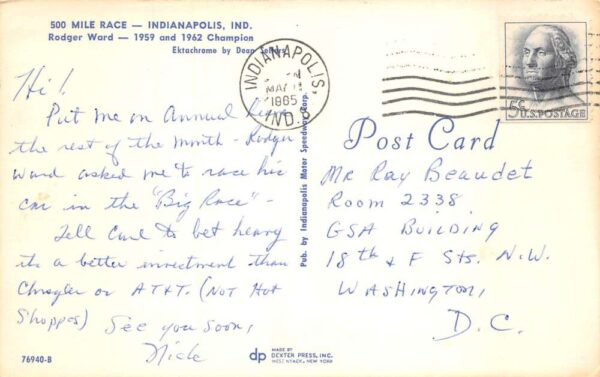 500 MILE RACE — INDIANAPOLIS, IND.
Rodger Ward — 1959 and 1962 Champion
Ektachrome by Dean Sellers
Hi!
Put me on Annual Leave
the rest of the month - Rodger
Ward asked me to race his
car in the "Big Race" -
Tell Carl to bet heavy
its a better investment than
Chrysler or AT&T. (Not Hot
Shoppes) See you soon,
Nick
76940-B
Pub. by Indianapolis Motor Speedway Corp.
dp
MADE BY
DEXTER PRESS, INC.
WEST NYACK, NEW YORK
INDIANAPOLIS,
MAY
1965
IND.
5¢
U.S. POSTAGE
Post Card
Mr Ray Beaudet
Room 2338
GSA Building
18th & F Sts. N.W.
Washington,
D.C.